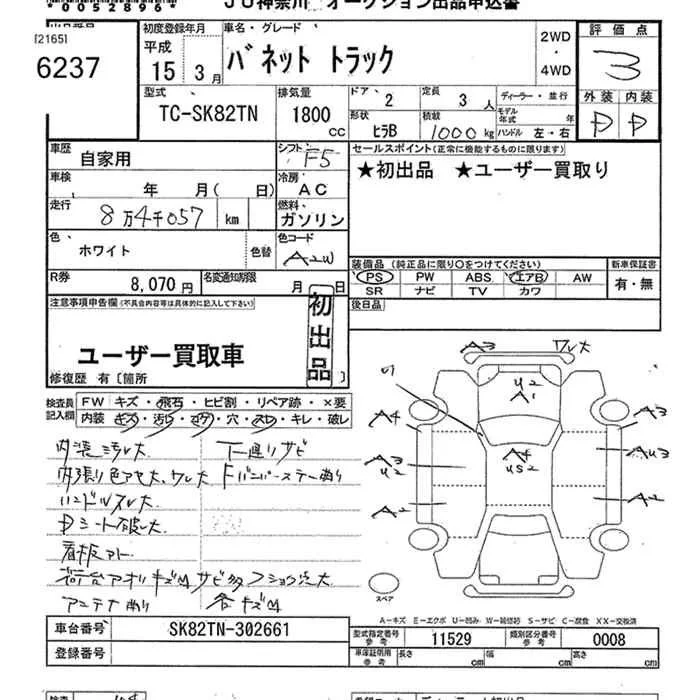 0052896 JU神奈川 オークション出品申込書
[2165]
6237
初度登録年月
平成
15 年 3 月
車名・グレード
バネット トラック
2WD
・
4WD
評価点
3
外装 内装
D D
型式
TC-SK82TN
排気量
1800
CC
ドア、 2
定員 3 人
ディーラー・並行
モデル年式 年
形状 ヒラB
積載 1000 kg
ハンドル 左・右
車歴 自家用
シフト F5
セールスポイント(正常に機能するものに限ります)
★初出品 ★ユーザー買取り
車検 年 月( 日)
冷房 AC
走行 8万4千057 km
燃料 ガソリン
色、 ホワイト
色替
色コード A2W
装備品(純正品に限り○をつけてください)
新車保証書
PS PW ABS エアB AW
SR ナビ TV カワ
有・無
R券 8,070円
名変通知期限 月 日
後日品
注意事項申告欄(不具合内容等は具体的に記入して下さい)
初出品
ユーザー買取車
修復歴 有〔箇所 〕
検査員記入欄
FW キズ・飛石・ヒビ割・リペア跡・×要
内装 キズ・汚レ・コゲ・穴・スレ・キレ・破レ
内装汚レ大 下廻りサビ
内張り色アセ大、ワレ大 Fバンパーステー曲り
ハンドルスレ大
Dシート破レ大
看板アト
荷台アオリキズ凹サビ多
アンテナ曲り 各キズ凹
A3 ワレ大
U2
A1
A4
A3
U2
A2
A4
US2
A3
AU3
A2
スペア
A-キズ E-エクボ U-凹み W-補修跡 S-サビ C-腐食 XX-交換済
車台番号 SK82TN-302661
登録番号
型式指定番号 参考 11529
類別区分番号 参考 0008
車庫証明用 参考
長さ cm
幅 cm
高さ cm